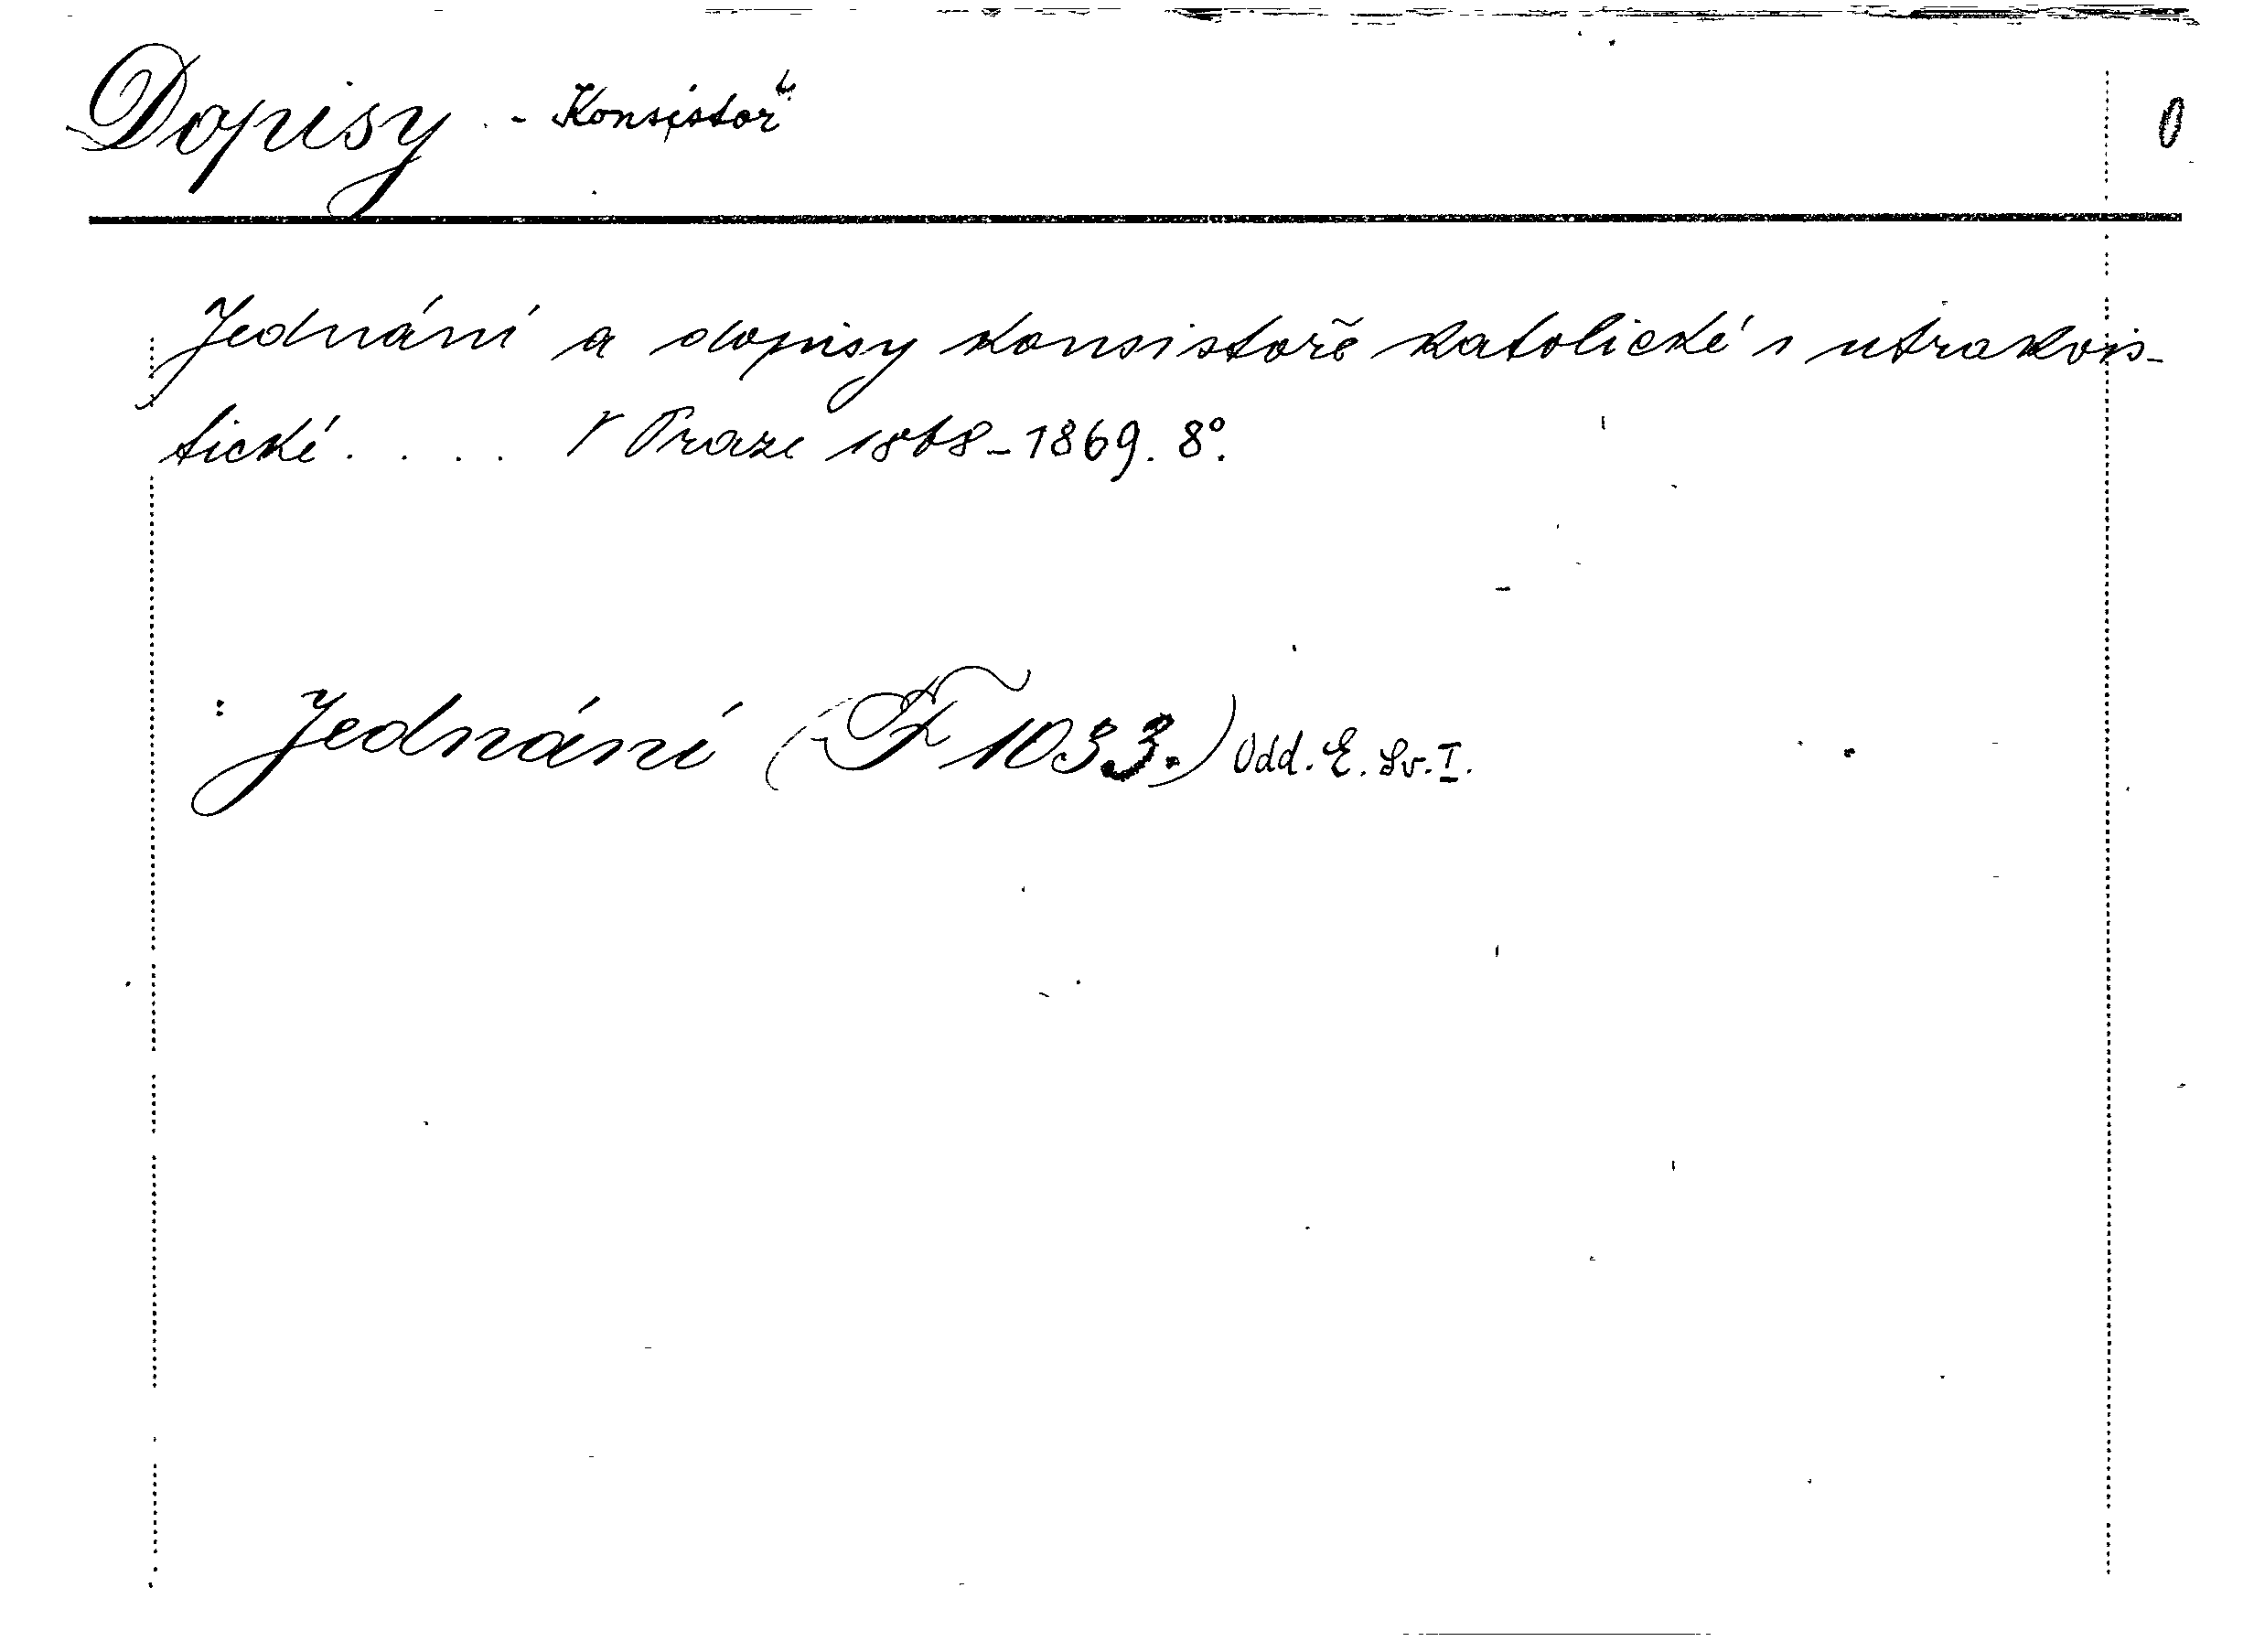 Dopisy - Konsistoř 0
Jednání a dopisy konsistoře katolické i utrakvis-
tické . . . . V Praze 1868-1869. 8°.
: Jednání (F 1033.) Odd. E. Sv. I.